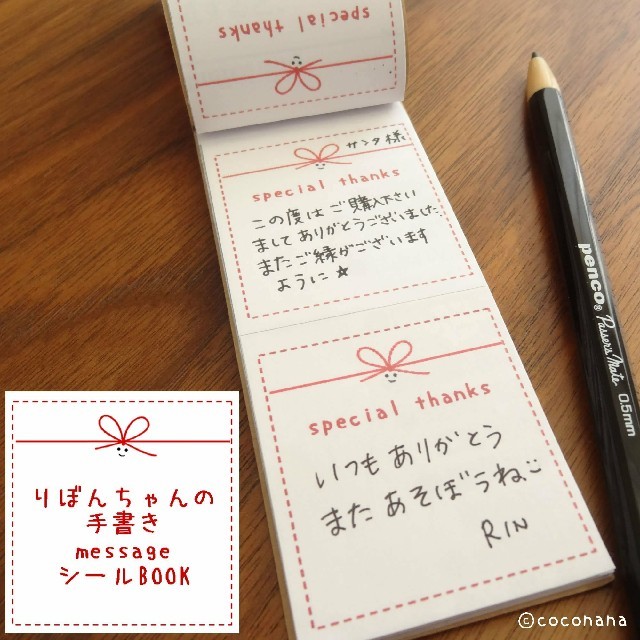 special thanks
サンタ様
special thanks
この度は ご購入下さい
まして ありがとうございました
またご縁がございます
ように★
special thanks
いつも ありがとう
また あそぼうねこ
RIN
penco®
Passers Mate
0.5mm
りぼんちゃんの
手書き
message
シールBOOK
©cocohana